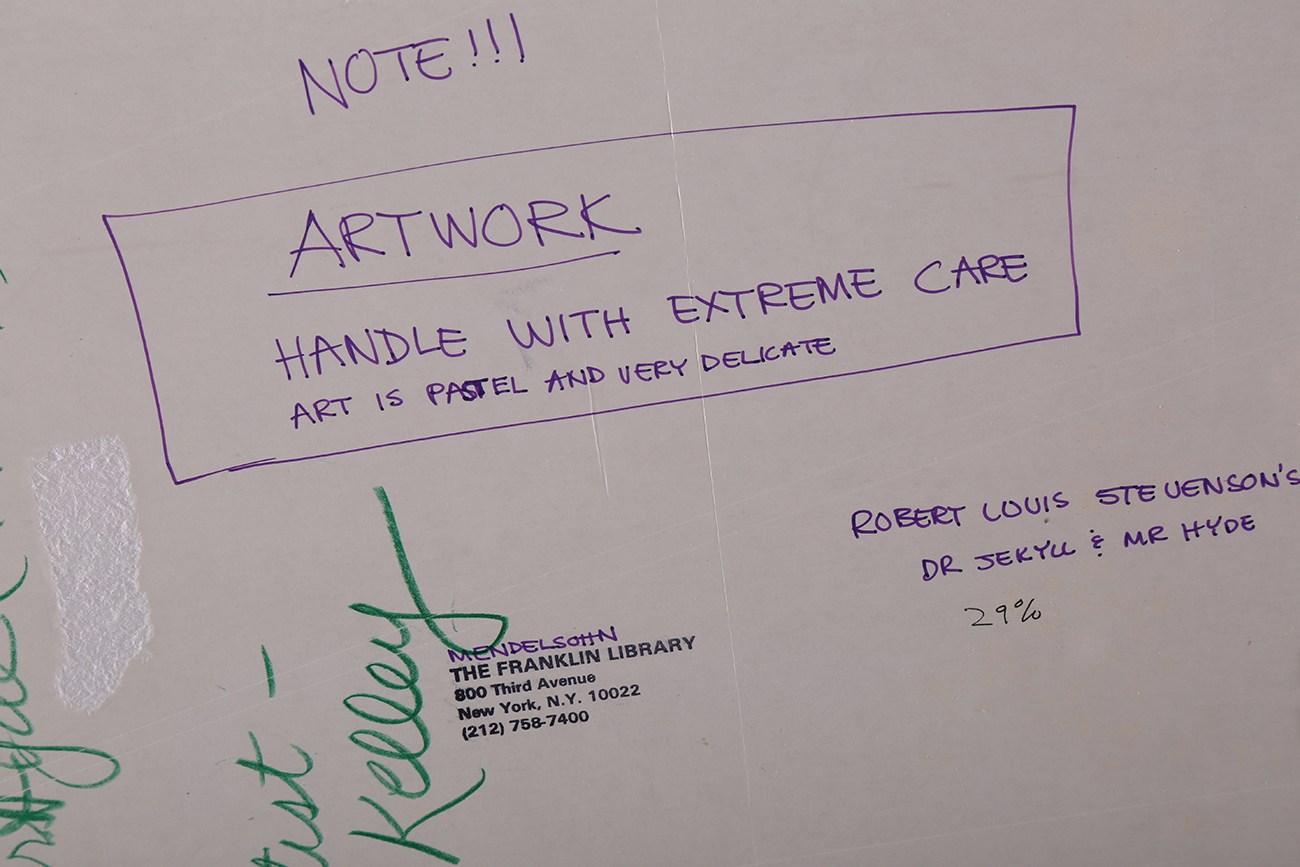 NOTE!!!
ARTWORK
HANDLE WITH EXTREME CARE
ART IS PASTEL AND VERY DELICATE
ROBERT LOUIS STEVENSON'S
DR JEKYLL & MR HYDE
29%
MENDELSOHN
THE FRANKLIN LIBRARY
800 Third Avenue
New York, N.Y. 10022
(212) 758-7400
Kelley